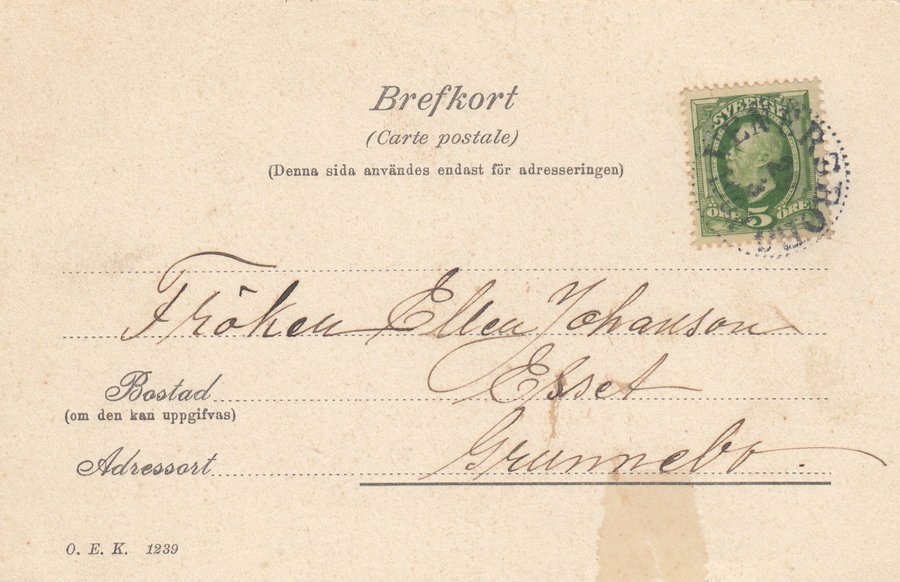 Brefkort
(Carte postale)
(Denna sida användes endast för adresseringen)
SVERIGE
5
ÖRE ÖRE
Fröken Ellen Johanson
Bostad Esset
(om den kan uppgifvas)
Adressort Grunnebo.
O. E. K. 1239